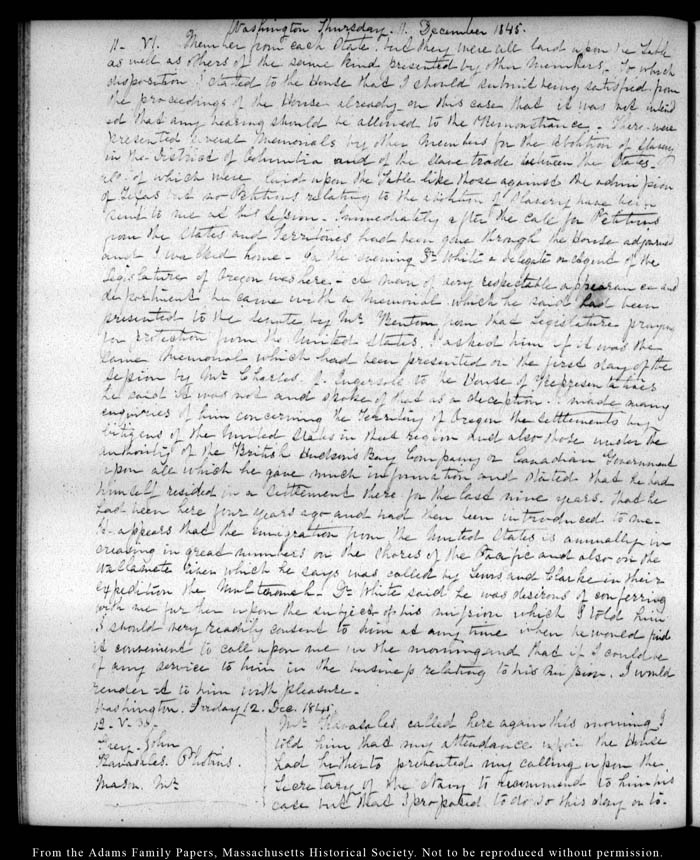 Washington Thursday. 11. December 1845.
11- VI. Member from each State, but they were all laid upon the Table
as well as others of the same kind presented by other members. To which
disposition I stated to the House that I should submit being satisfied from
the proceedings of the House already on this case that it was not intend
ed that any hearing should be allowed to the Remonstrance. There were
presented several Memorials by other Members for the abolition of Slavery
in the District of Columbia and of the slave trade between the States
all of which were laid upon the Table like those against the admission
of Texas but no Petitions relating to the abolition of Slavery have been
sent to me at this session. Immediately after the call for Petitions
from the States and Territories had been gone through the House adjourned
and I walked home. In the evening Dr. White a delegate or Agent of the
Legislature of Oregon was here. A man of very respectable appearance and
deportment he came with a memorial which he said had been
presented to the Senate by Mr. Benton from that Legislature praying
for protection from the United States. I asked him if it was the
same Memorial which had been presented on the first day of the
session by Mr Charles J. Ingersoll to the House of Representatives
he said it was not and spoke of that as a deception. I made many
enquiries of him concerning the Territory of Oregon the settlements by
Citizens of the United States in that region and also those under the
authority of the British Hudson's Bay Company or Canadian Government
upon all which he gave much information and stated that he had
himself resided in a Settlement there for the last nine years. That he
had been here four years ago and had then been introduced to me.
It appears that the emigration from the United States is annually in
creasing in great numbers on the shores of the Pacific and also on the
Wallamete River which he says was called by Lewis and Clarke in their
expedition the Multnomah. Dr White said he was desirous of conferring
with me further upon the subject of his mission which I told him
I should very readily consent to him at any time when he would find
it convenient to call upon me in the morning and that if I could be
of any service to him in the business relating to his mission. I would
render it to him with pleasure.
Washington. Friday 12. Dec. 1845.
12- V- 30. Mr. Kavasales called here again this morning I
Frey- John told him that my attendance upon the House
Kavasales Photius. had hitherto prevented my calling upon the
Mason. Mr Secretary of the Navy to recommend to him his
case but that I proposed to do so this day on to-
From the Adams Family Papers, Massachusetts Historical Society. Not to be reproduced without permission.